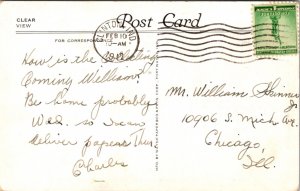 CLEAR
VIEW
Post Card
FOR CORRESPONDENCE
CLINTON, IND.
FEB 10
10-AM
194
How is the
Coming William.
Be home probably
Wed. so I can
deliver papers Thur.
Charles
Mr. William Skinner
Jr.
10906 S. Mich. Ave.
Chicago,
Ill.